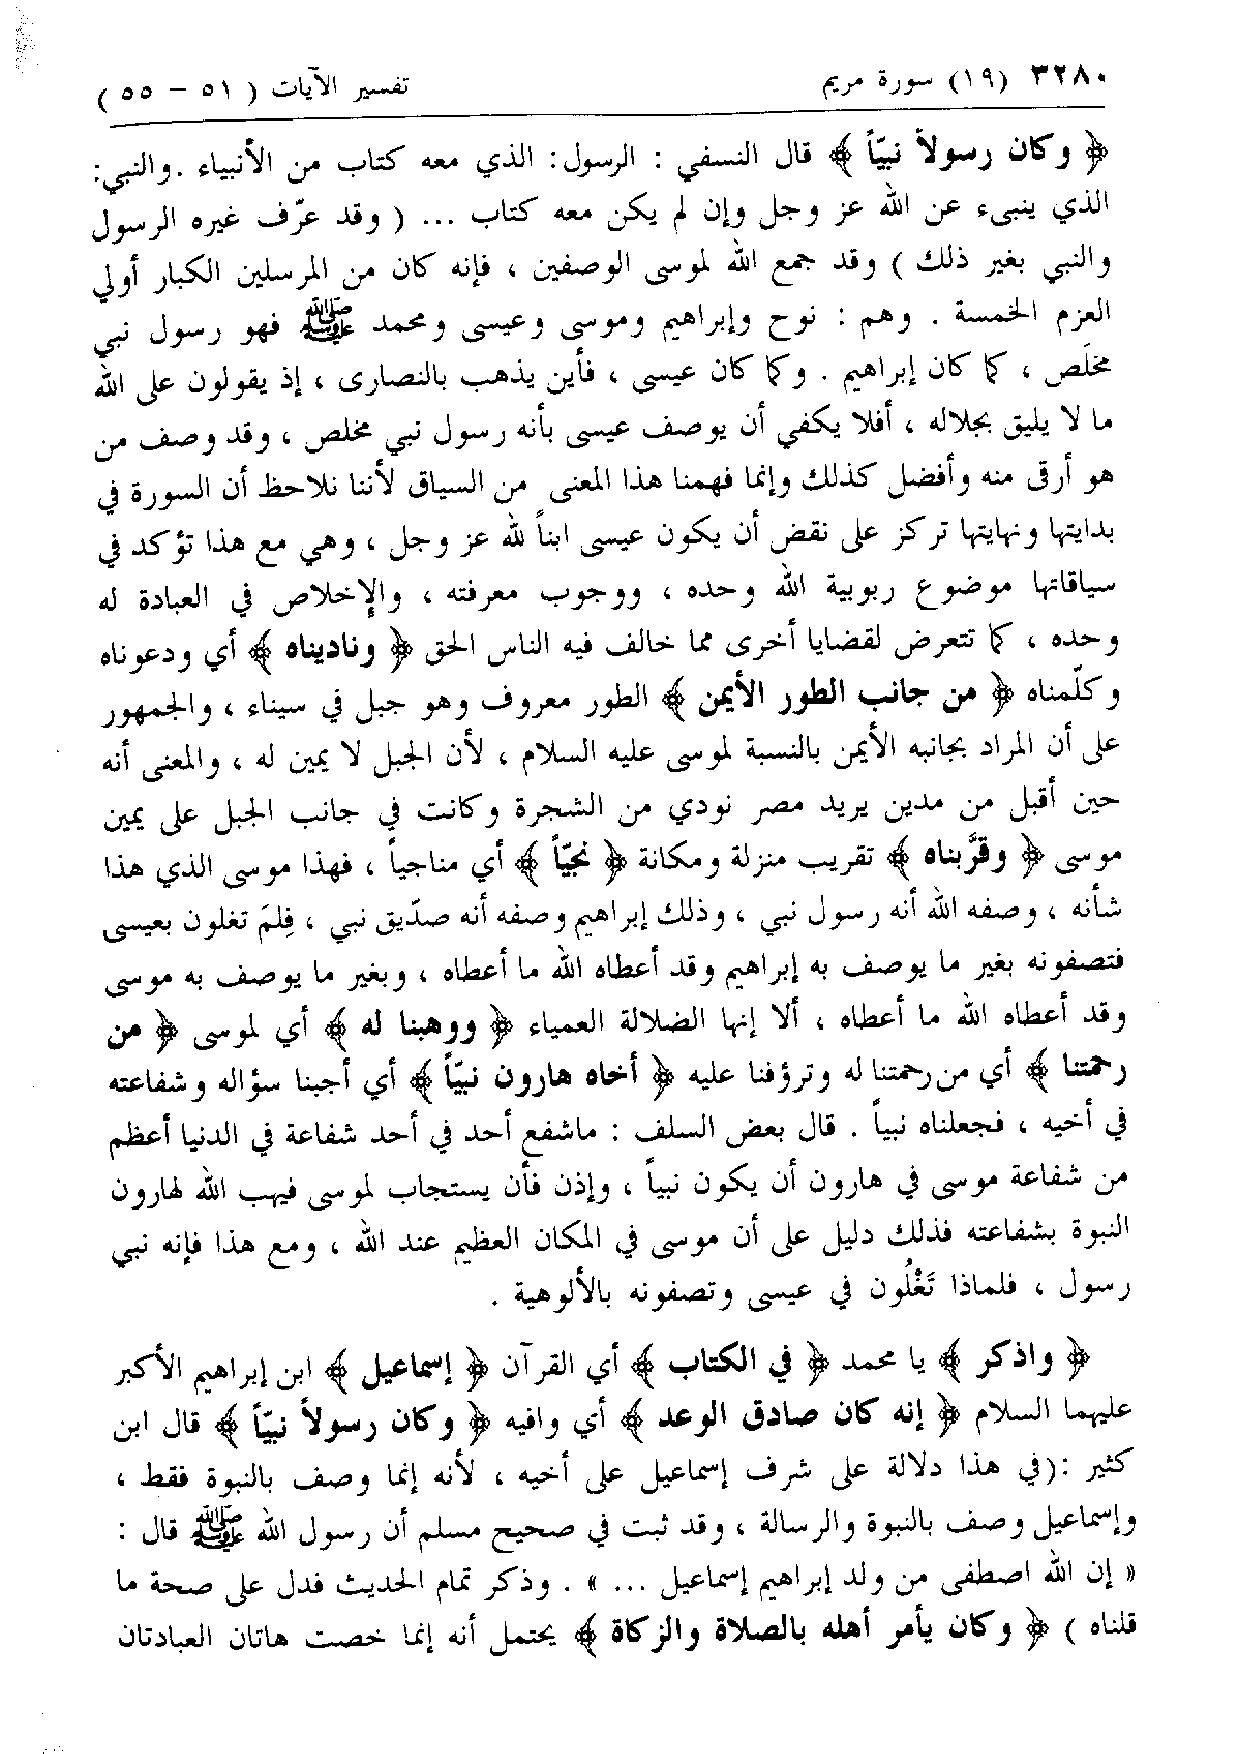 ٣٢٨٠ (١٩) سورة مريم تفسير الآيات ( ٥١ – ٥٥ )
﴿ وكان رسولاً نبيّاً ﴾ قال النسفي : الرسول: الذي معه كتاب من الأنبياء .والنبي:
الذي ينبىء عن الله عز وجل وإن لم يكن معه كتاب ... ( وقد عرّف غيره الرسول
والنبي بغير ذلك ) وقد جمع الله لموسى الوصفين ، فإنه كان من المرسلين الكبار أولي
العزم الخمسة . وهم : نوح وإبراهيم وموسى وعيسى ومحمد ﷺ فهو رسول نبي
مخلَص ، كما كان إبراهيم . وكما كان عيسى ، فأين يذهب بالنصارى ، إذ يقولون على الله
ما لا يليق بجلاله ، أفلا يكفي أن يوصف عيسى بأنه رسول نبي مخلص ، وقد وصف من
هو أرقى منه وأفضل كذلك وإنما فهمنا هذا المعنى من السياق لأننا نلاحظ أن السورة في
بدايتها ونهايتها تركز على نقض أن يكون عيسى ابناً لله عز وجل ، وهي مع هذا تؤكد في
سياقاتها موضوع ربوبية الله وحده ، ووجوب معرفته ، والإخلاص في العبادة له
وحده ، كما تتعرض لقضايا أخرى مما خالف فيه الناس الحق ﴿ وناديناه ﴾ أي ودعوناه
وكلّمناه ﴿ من جانب الطور الأيمن ﴾ الطور معروف وهو جبل في سيناء ، والجمهور
على أن المراد بجانبه الأيمن بالنسبة لموسى عليه السلام ، لأن الجبل لا يمين له ، والمعنى أنه
حين أقبل من مدين يريد مصر نودي من الشجرة وكانت في جانب الجبل على يمين
موسى ﴿ وقرَّبناه ﴾ تقريب منزلة ومكانة ﴿ نجيّاً ﴾ أي مناجياً ، فهذا موسى الذي هذا
شأنه ، وصفه الله أنه رسول نبي ، وذلك إبراهيم وصفه أنه صدّيق نبي ، فِلمَ تغلون بعيسى
فتصفونه بغير ما يوصف به إبراهيم وقد أعطاه الله ما أعطاه ، وبغير ما يوصف به موسى
وقد أعطاه الله ما أعطاه ، ألا إنها الضلالة العمياء ﴿ ووهبنا له ﴾ أي لموسى ﴿ من
رحمتنا ﴾ أي من رحمتنا له وترؤفنا عليه ﴿ أخاه هارون نبيّاً ﴾ أي أجبنا سؤاله وشفاعته
في أخيه ، فجعلناه نبياً . قال بعض السلف : ماشفع أحد في أحد شفاعة في الدنيا أعظم
من شفاعة موسى في هارون أن يكون نبياً ، وإذن فأن يستجاب لموسى فيهب الله لهارون
النبوة بشفاعته فذلك دليل على أن موسى في المكان العظيم عند الله ، ومع هذا فإنه نبي
رسول ، فلماذا تَغْلُون في عيسى وتصفونه بالألوهية .
﴿ واذكر ﴾ يا محمد ﴿ في الكتاب ﴾ أي القرآن ﴿ إسماعيل ﴾ ابن إبراهيم الأكبر
عليهما السلام ﴿ إنه كان صادق الوعد ﴾ أي وافيه ﴿ وكان رسولاً نبيّاً ﴾ قال ابن
كثير :(في هذا دلالة على شرف إسماعيل على أخيه ، لأنه إنما وصف بالنبوة فقط ،
وإسماعيل وصف بالنبوة والرسالة ، وقد ثبت في صحيح مسلم أن رسول الله ﷺ قال :
« إن الله اصطفى من ولد إبراهيم إسماعيل ... » . وذكر تمام الحديث فدل على صحة ما
قلناه ) ﴿ وكان يأمر أهله بالصلاة والزكاة ﴾ يحتمل أنه إنما خصت هاتان العبادتان